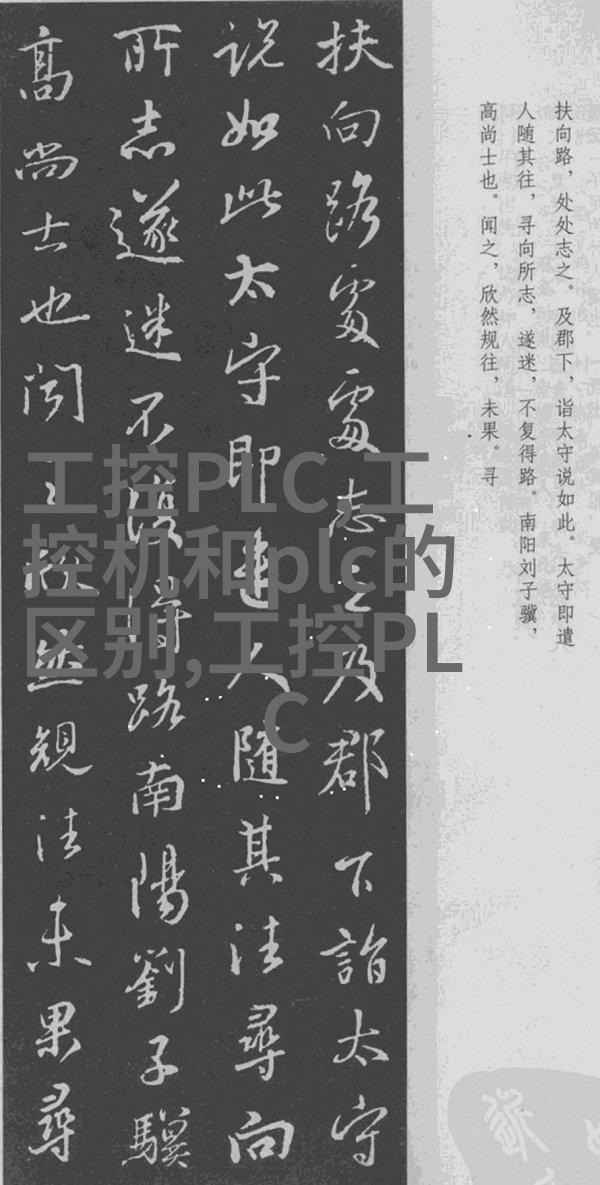 扶向路處處志之及郡下詣太守
说如此太守即遣人随其往尋向
所志遂迷不復得路南陽劉子驥
高尚士也闻之欣然規往未果尋
扶向路，处处志之。及郡下，诣太守说如此。太守即遣
人随其往，寻向所志，遂迷，不复得路。南阳刘子骥，
高尚士也。闻之，欣然规往，未果。寻
工控PLC,工
控机和plc的
区别,工控PL
C